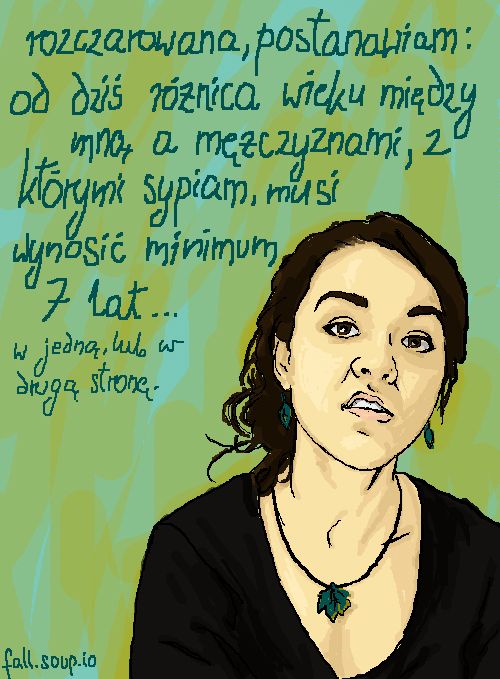 rozczarowana, postanawiam:
od dziś różnica wieku między
mną, a mężczyznami, z
którymi sypiam, musi
wynosić minimum
7 lat...
w jedną, lub w
drugą stronę.
fall.soup.io